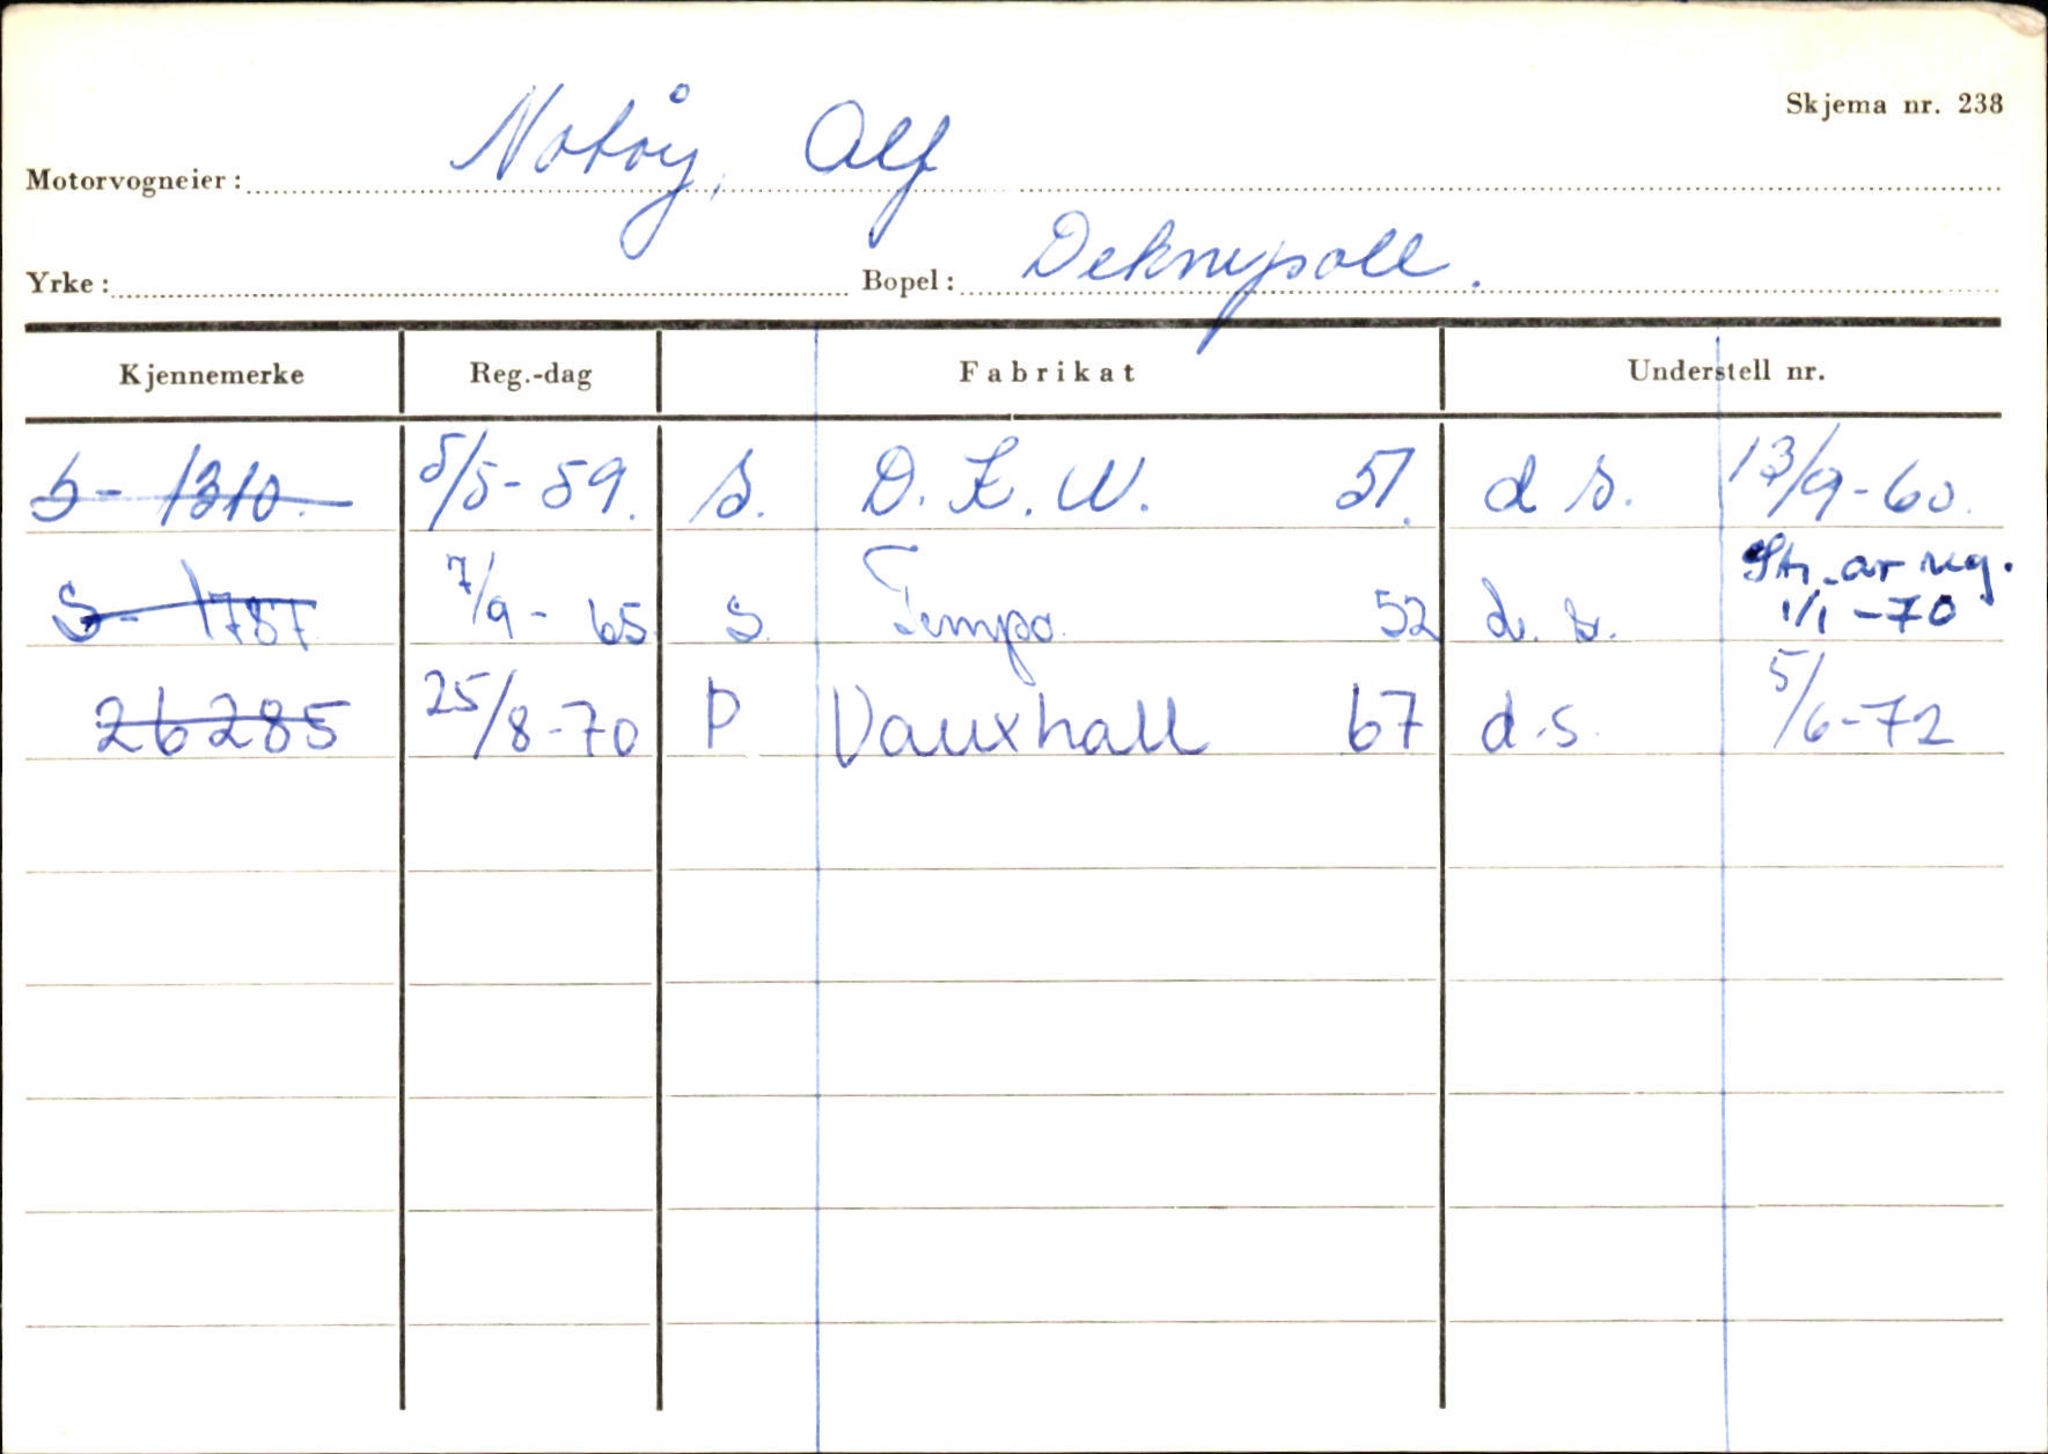 Skjema nr. 238
Motorvogneier: Notøy, Alf
Yrke: Bopel: Deknepoll.
Kjennemerke Reg.-dag Fabrikat Understell nr.
S- 1310. 5/5-59. S. D.K.W. 51. d s. 13/9-60.
S- 1787 7/9-65 S. Tempo. 52 d. s. Str. av reg. 1/1-70
26285 25/8-70 P Vauxhall 67 d.s. 5/6-72